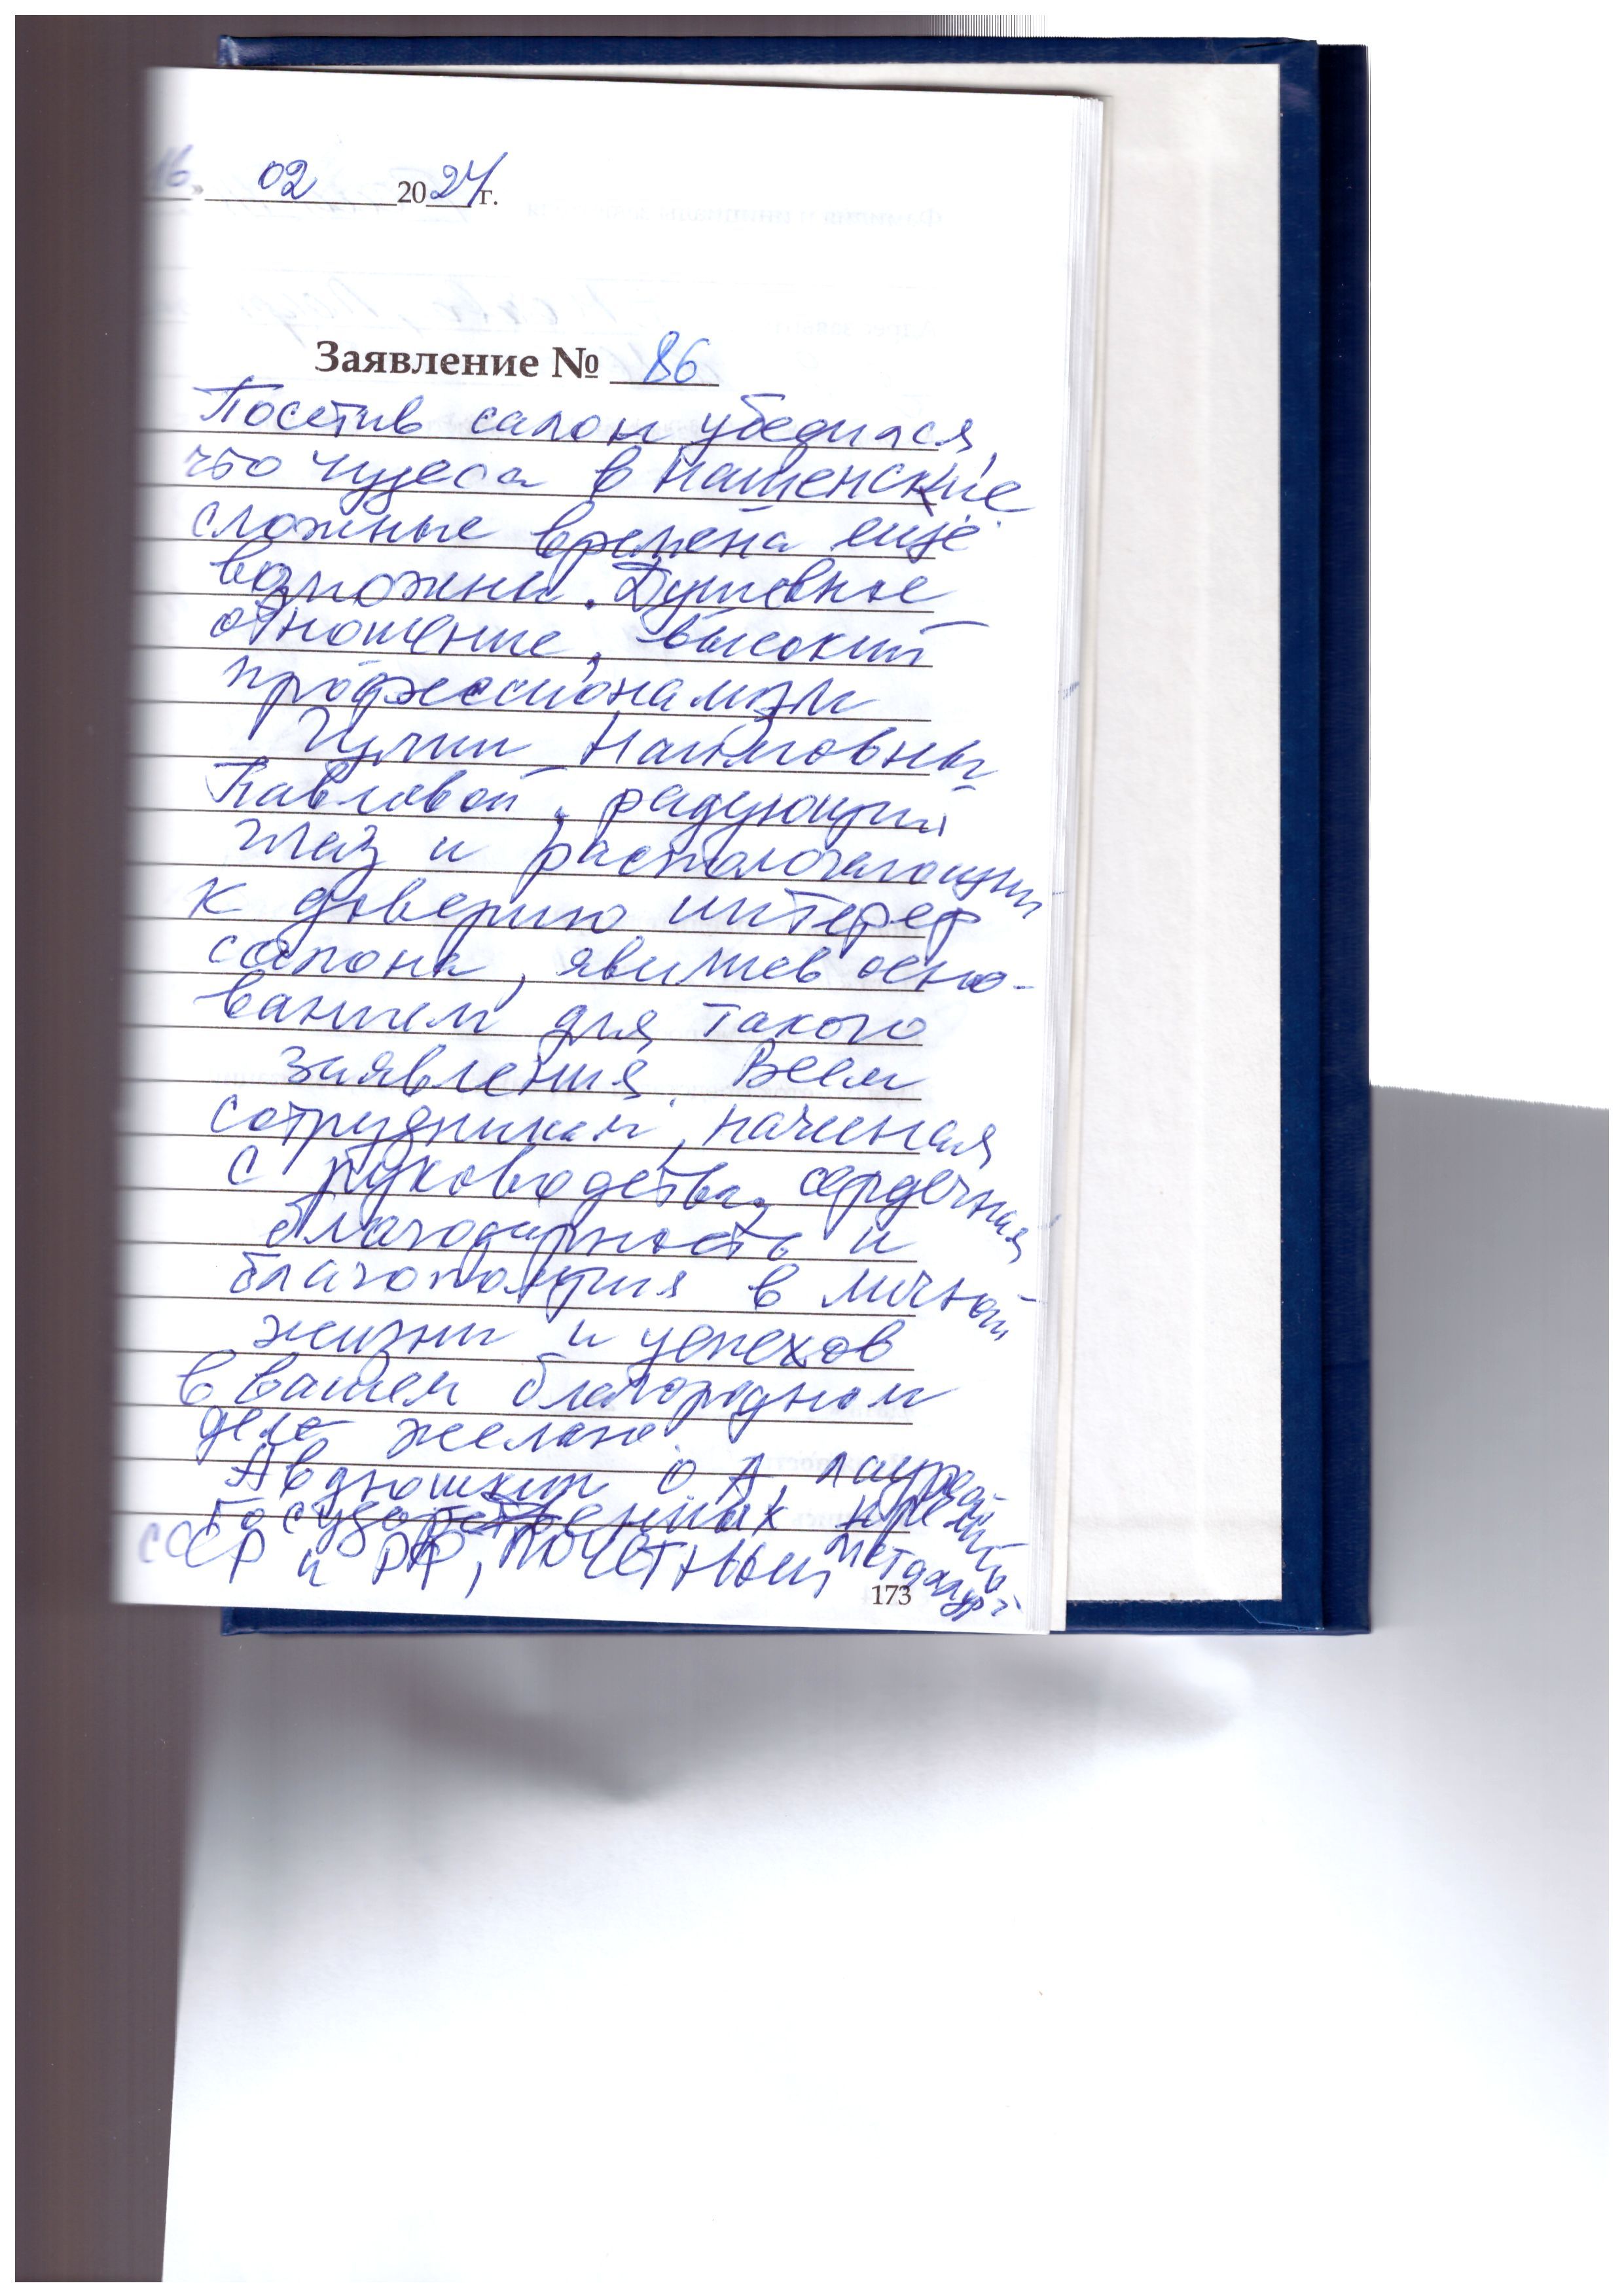 16 » 02 2024 г.
Заявление № 86
Посетив салон убедился,
что чудеса в нашенские
сложные времена ещё
возможны. Душевное
отношение, высокий
профессионализм
Наимовны
Павловой, радующий
глаз и располагающий
к доверию интерер
салона, явились осно-
ванием для такого
заявления. Всем
сотрудникам, начиная
с руководства, сердечная
благодарность и
благополучия в личной
жизни и успехов
в вашем благородном
деле желаю.
Авдюшкин О А, лауреат
Государственных премий
СССР и РФ, почетный металлург
173